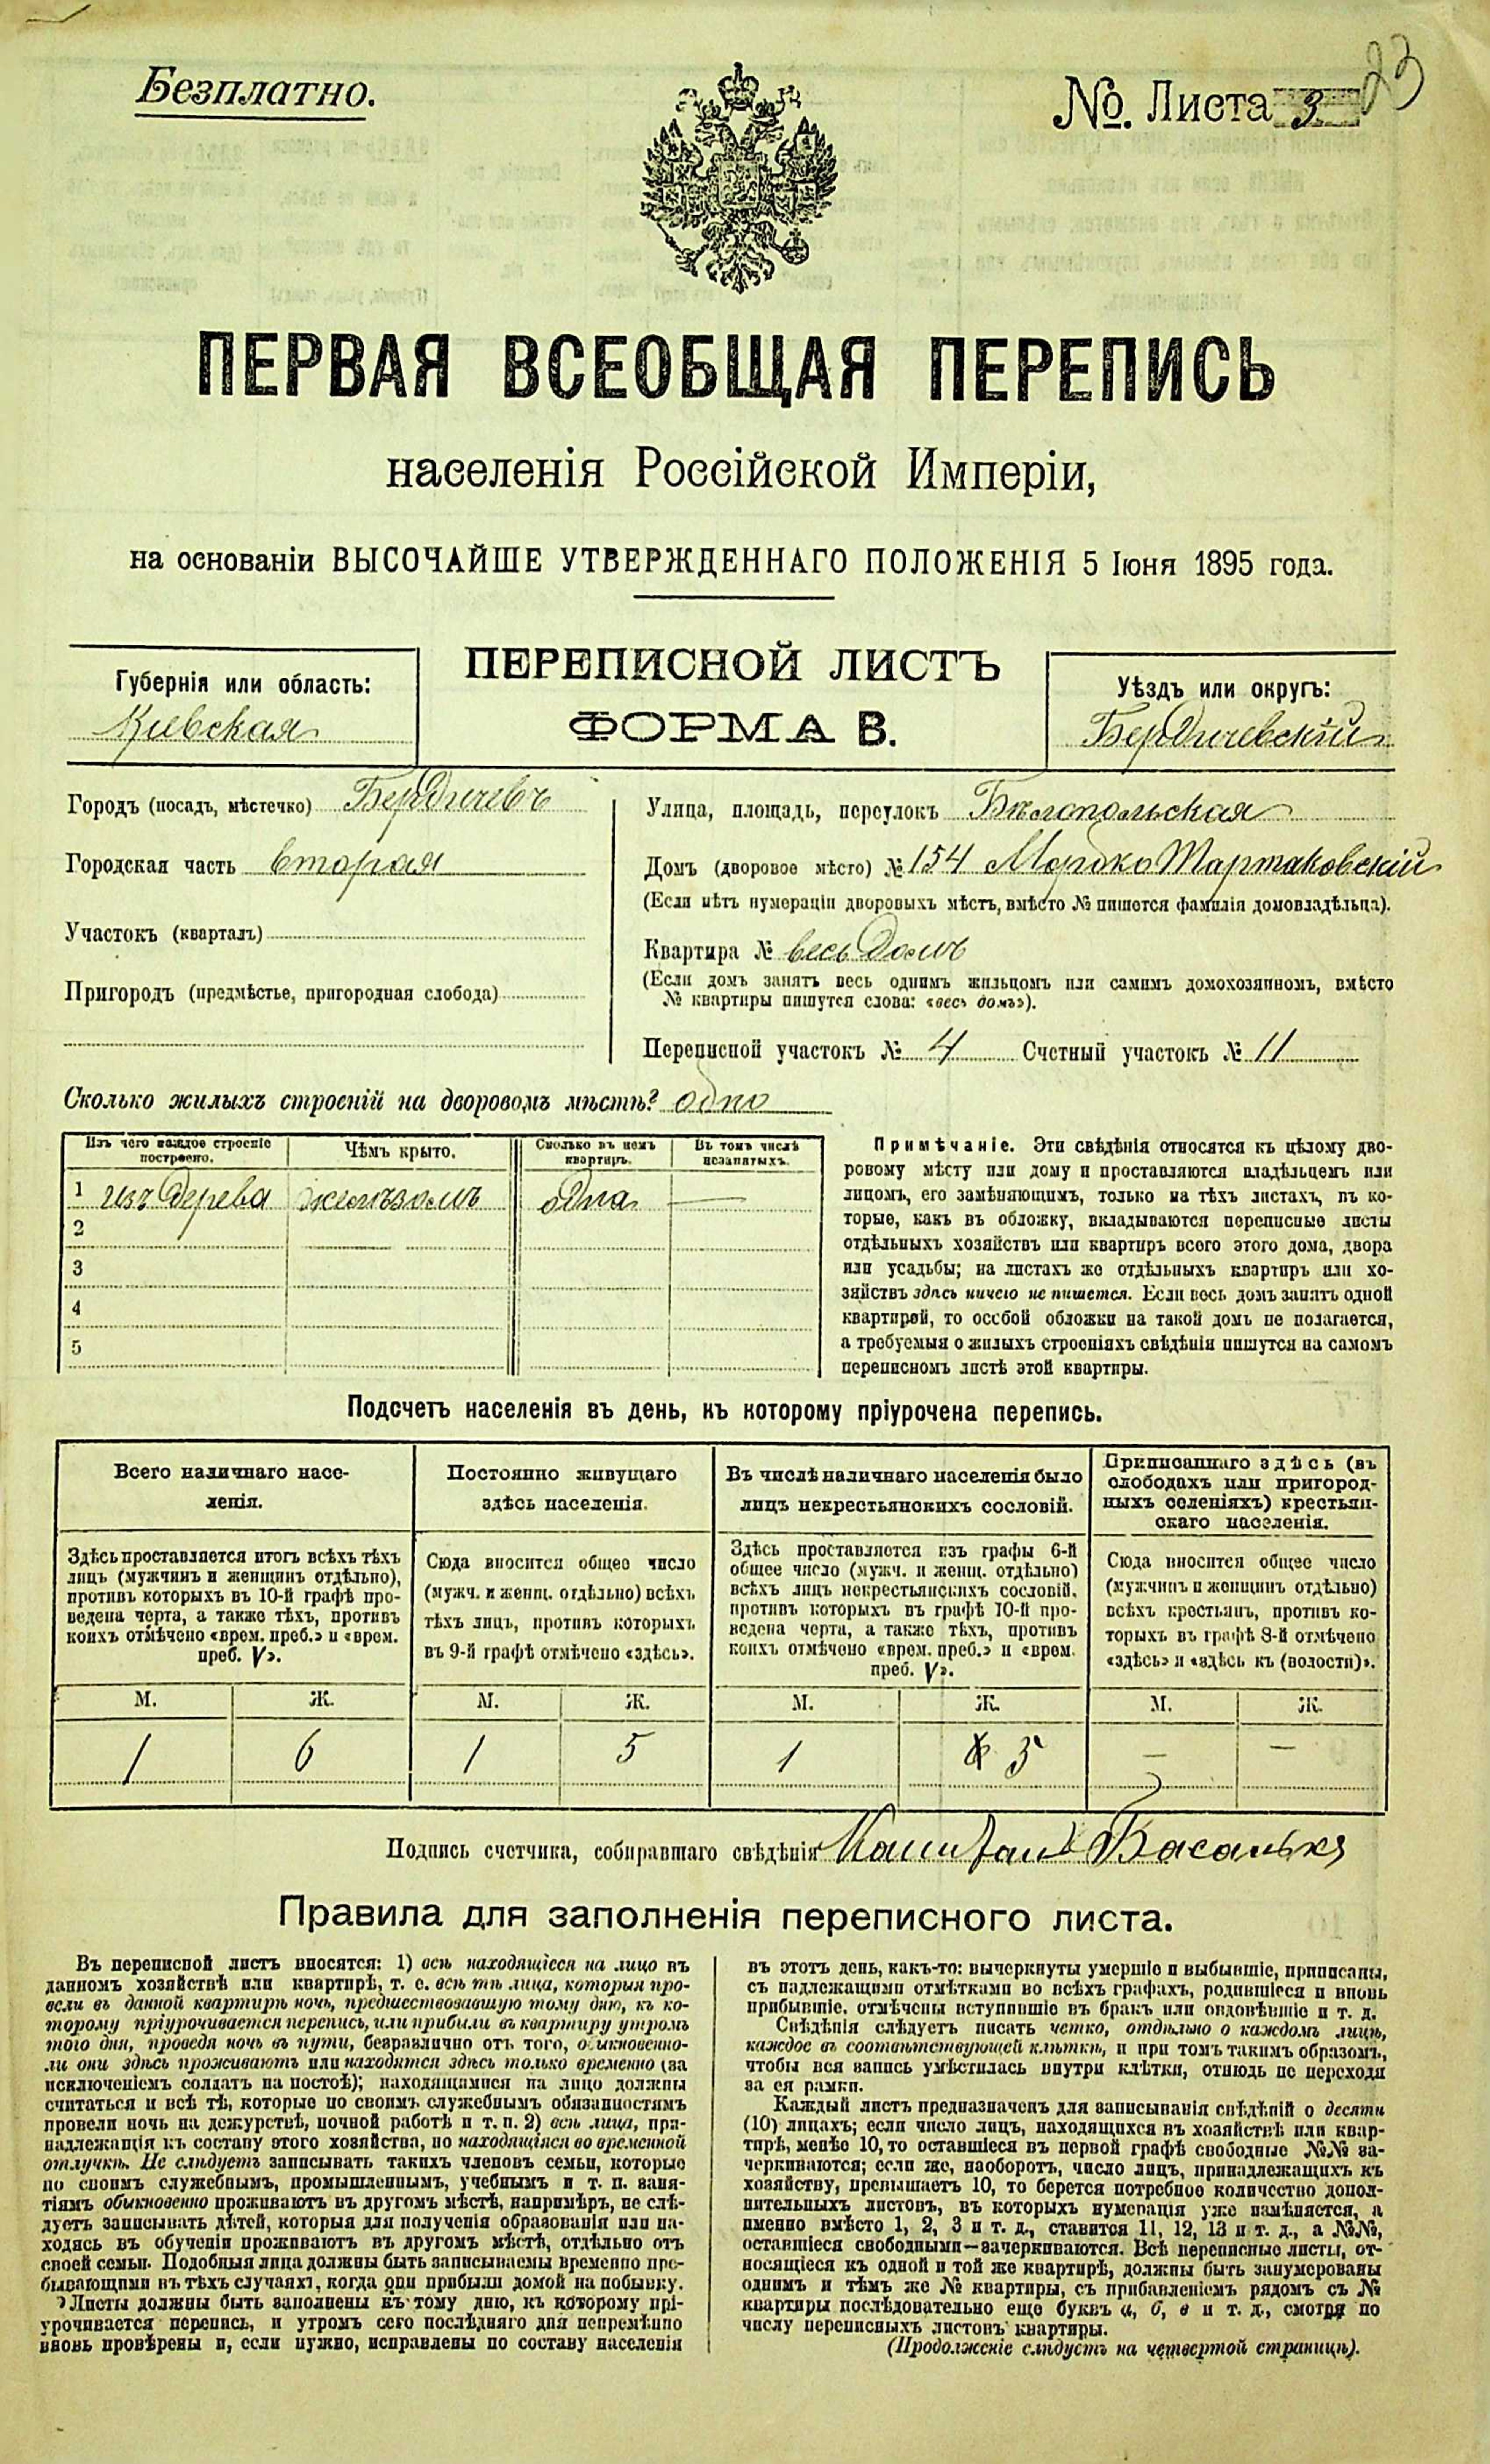 Безплатно.
№. Листа 3
23
ПЕРВАЯ ВСЕОБЩАЯ ПЕРЕПИСЬ
населенія Россійской Имперіи,
на основаніи ВЫСОЧАЙШЕ УТВЕРЖДЕННАГО ПОЛОЖЕНІЯ 5 Іюня 1895 года.
ПЕРЕПИСНОЙ ЛИСТЪ
ФОРМА В.
Губернія или область:
Кіевская
Уѣздъ или округъ:
Бердичевскій
Городъ (посадъ, мѣстечко) Бердичевъ
Городская часть вторая
Участокъ (кварталъ)
Пригородъ (предмѣстье, пригородная слобода)
Улица, площадь, переулокъ Бѣлопольская
Домъ (дворовое мѣсто) № 154 Мордко Тартаковскій
(Если нѣтъ нумераціи дворовыхъ мѣстъ, вмѣсто № пишется фамилія домовладѣльца).
Квартира № весь домъ
(Если домъ занятъ весь однимъ жильцомъ или самимъ домохозяиномъ, вмѣсто
№ квартиры пишутся слова: «весь домъ»).
Переписной участокъ № 4 Счетный участокъ № 11
Сколько жилыхъ строеній на дворовомъ мѣстѣ? одно
Изъ чего каждое строеніе
построено.
Чѣмъ крыто.
Сколько въ немъ
квартиръ.
Въ томъ числѣ
незанятыхъ.
1 изъ дерева желѣзомъ одна —
2
3
4
5
Примѣчаніе. Эти свѣдѣнія относятся къ цѣлому дво-
ровому мѣсту или дому и проставляются владѣльцемъ или
лицомъ, его замѣняющимъ, только на тѣхъ листахъ, въ ко-
торые, какъ въ обложку, вкладываются переписные листы
отдѣльныхъ хозяйствъ или квартиръ всего этого дома, двора
или усадьбы; на листахъ же отдѣльныхъ квартиръ или хо-
зяйствъ здѣсь ничего не пишется. Если весь домъ занятъ одной
квартирой, то особой обложки на такой домъ не полагается,
а требуемыя о жилыхъ строеніяхъ свѣдѣнія пишутся на самомъ
переписномъ листѣ этой квартиры.
Подсчетъ населенія въ день, къ которому пріурочена перепись.
Всего наличнаго насе-
ленія.
Здѣсь проставляется итогъ всѣхъ тѣхъ
лицъ (мужчинъ и женщинъ отдѣльно),
противъ которыхъ въ 10-й графѣ про-
ведена черта, а также тѣхъ, противъ
коихъ отмѣчено «врем. преб.» и «врем.
преб. V».
Постоянно живущаго
здѣсь населенія.
Сюда вносится общее число
(мужч. и женщ. отдѣльно) всѣхъ
тѣхъ лицъ, противъ которыхъ
въ 9-й графѣ отмѣчено «здѣсь».
Въ числѣ наличнаго населенія было
лицъ некрестьянскихъ сословій.
Здѣсь проставляется изъ графы 6-й
общее число (мужч. и женщ. отдѣльно)
всѣхъ лицъ некрестьянскихъ сословій,
противъ которыхъ въ графѣ 10-й про-
ведена черта, а также тѣхъ, противъ
коихъ отмѣчено «врем. преб.» и «врем.
преб. V».
Приписаннаго здѣсь (въ
слободахъ или пригород-
ныхъ селеніяхъ) крестьян-
скаго населенія.
Сюда вносится общее число
(мужчинъ и женщинъ отдѣльно)
всѣхъ крестьянъ, противъ ко-
торыхъ въ графѣ 8-й отмѣчено
«здѣсь» и «здѣсь къ (волости)».
М. Ж. М. Ж. М. Ж. М. Ж.
1 6 1 5 1 5 — —
Подпись счетчика, собиравшаго свѣдѣнія
Правила для заполненія переписного листа.
Въ переписной листъ вносятся: 1) всѣ находящіеся на лицо въ
данномъ хозяйствѣ или квартирѣ, т. е. всѣ тѣ лица, которыя про-
вели въ данной квартирѣ ночь, предшествовавшую тому дню, къ ко-
торому пріурочивается перепись, или прибыли въ квартиру утромъ
того дня, проведя ночь въ пути, безразлично отъ того, обыкновенно-
ли они здѣсь проживаютъ или находятся здѣсь только временно (за
исключеніемъ солдатъ на постоѣ); находящимися на лицо должны
считаться и всѣ тѣ, которые по своимъ служебнымъ обязанностямъ
провели ночь на дежурствѣ, ночной работѣ и т. п. 2) всѣ лица, при-
надлежащія къ составу этого хозяйства, но находящіяся во временной
отлучкѣ. Не слѣдуетъ записывать такихъ членовъ семьи, которые
по своимъ служебнымъ, промышленнымъ, учебнымъ и т. п. заня-
тіямъ обыкновенно проживаютъ въ другомъ мѣстѣ, напримѣръ, не слѣ-
дуетъ записывать дѣтей, которыя для полученія образованія или на-
ходясь въ обученіи проживаютъ въ другомъ мѣстѣ, отдѣльно отъ
своей семьи. Подобныя лица должны быть записываемы временно пре-
бывающими въ тѣхъ случаяхъ, когда они прибыли домой на побывку.
Листы должны быть заполнены къ тому дню, къ которому прі-
урочивается перепись, и утромъ сего послѣдняго дня непремѣнно
вновь провѣрены и, если нужно, исправлены по составу населенія
въ этотъ день, какъ-то: вычеркнуты умершіе и выбывшіе, приписаны,
съ надлежащими отмѣтками во всѣхъ графахъ, родившіеся и вновь
прибывшіе, отмѣчены вступившіе въ бракъ или овдовѣвшіе и т. д.
Свѣдѣнія слѣдуетъ писать четко, отдѣльно о каждомъ лицѣ,
каждое въ соотвѣтствующей клѣткѣ, и при томъ такимъ образомъ,
чтобы вся запись умѣстилась внутри клѣтки, отнюдь не переходя
за ея рамки.
Каждый листъ предназначенъ для записыванія свѣдѣній о десяти
(10) лицахъ; если число лицъ, находящихся въ хозяйствѣ или квар-
тирѣ, менѣе 10, то оставшіеся въ первой графѣ свободные №№ за-
черкиваются; если же, наоборотъ, число лицъ, принадлежащихъ къ
хозяйству, превышаетъ 10, то берется потребное количество допол-
нительныхъ листовъ, въ которыхъ нумерація уже измѣняется, а
именно вмѣсто 1, 2, 3 и т. д., ставится 11, 12, 13 и т. д., а №№,
оставшіеся свободными—зачеркиваются. Всѣ переписные листы, от-
носящіеся къ одной и той же квартирѣ, должны быть занумерованы
однимъ и тѣмъ же № квартиры, съ прибавленіемъ рядомъ съ №
квартиры послѣдовательно еще буквъ а, б, в и т. д., смотря по
числу переписныхъ листовъ квартиры.
(Продолженіе слѣдуетъ на четвертой страницѣ).